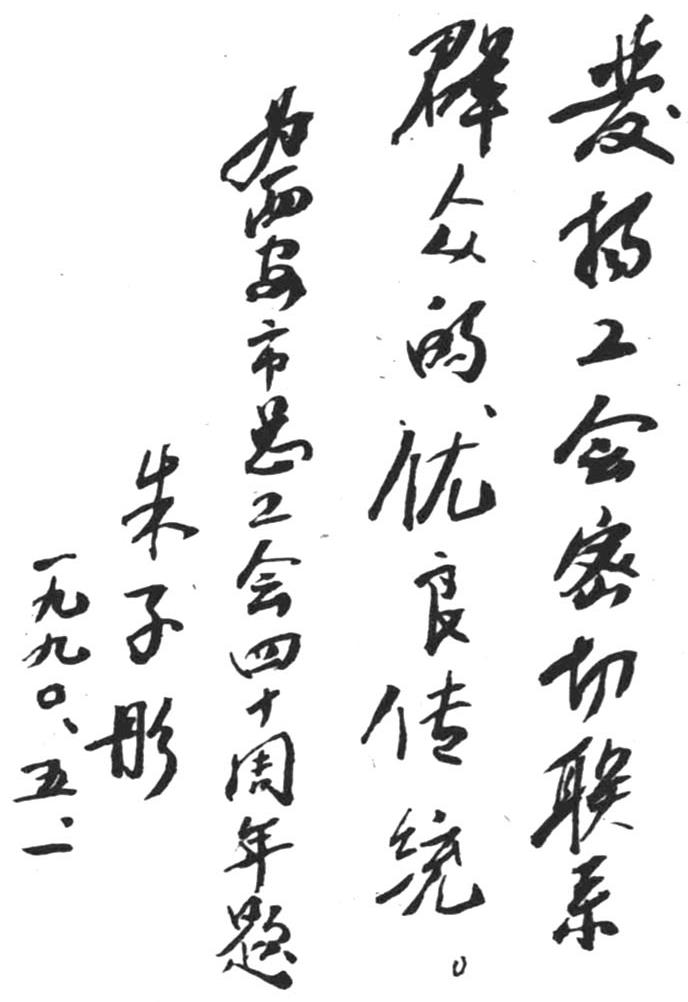 发扬工会密切联系
群众的优良传统。
为西安市总工会四十周年题
朱子彤
一九九〇、五、一